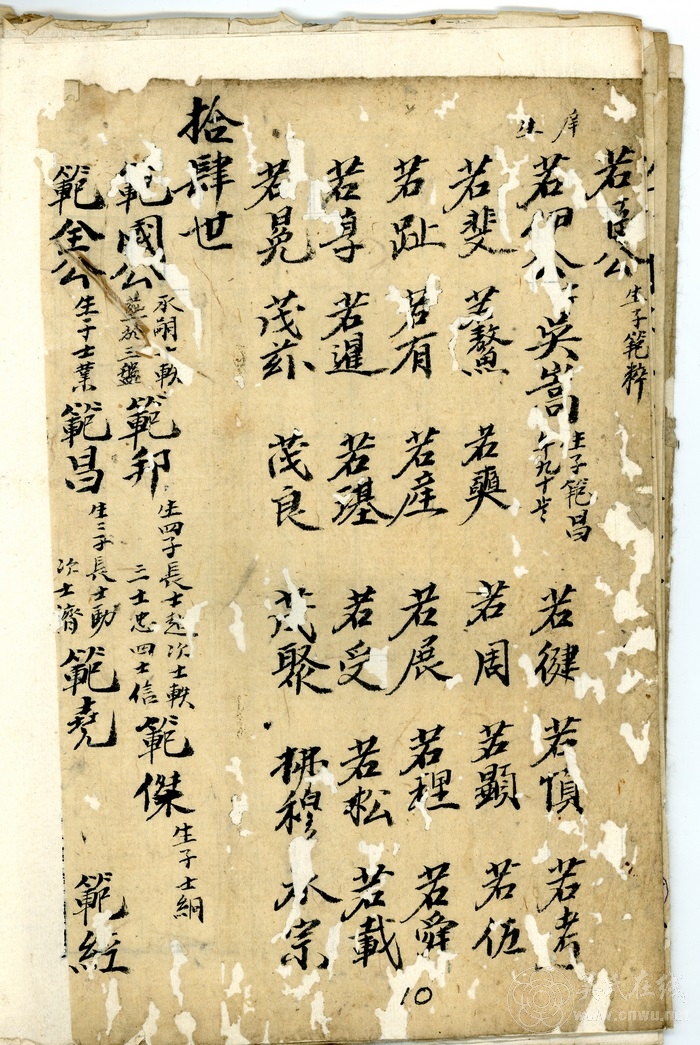 庠生
若喜公 生子範粹
若 公 吳嵩 生子範昌 午九十岁 若健 若慎 若考
若斐 若鰲 若爽 若周 若顯 若佐
若趾 若有 若產 若展 若程 若舜
若享 若暹 若璂 若受 若松 若載
若晃 茂茲 茂良 茂聚 穆 宗
拾肆世
範國公 承嗣 軼 範邦 生四子長士起次士軼 三士忠四士信 範傑 生子士絅
範全公 生子士業 範昌 生二子長士勳 次士濟 範堯 範經
10
吴氏在线
www.cnwu.net